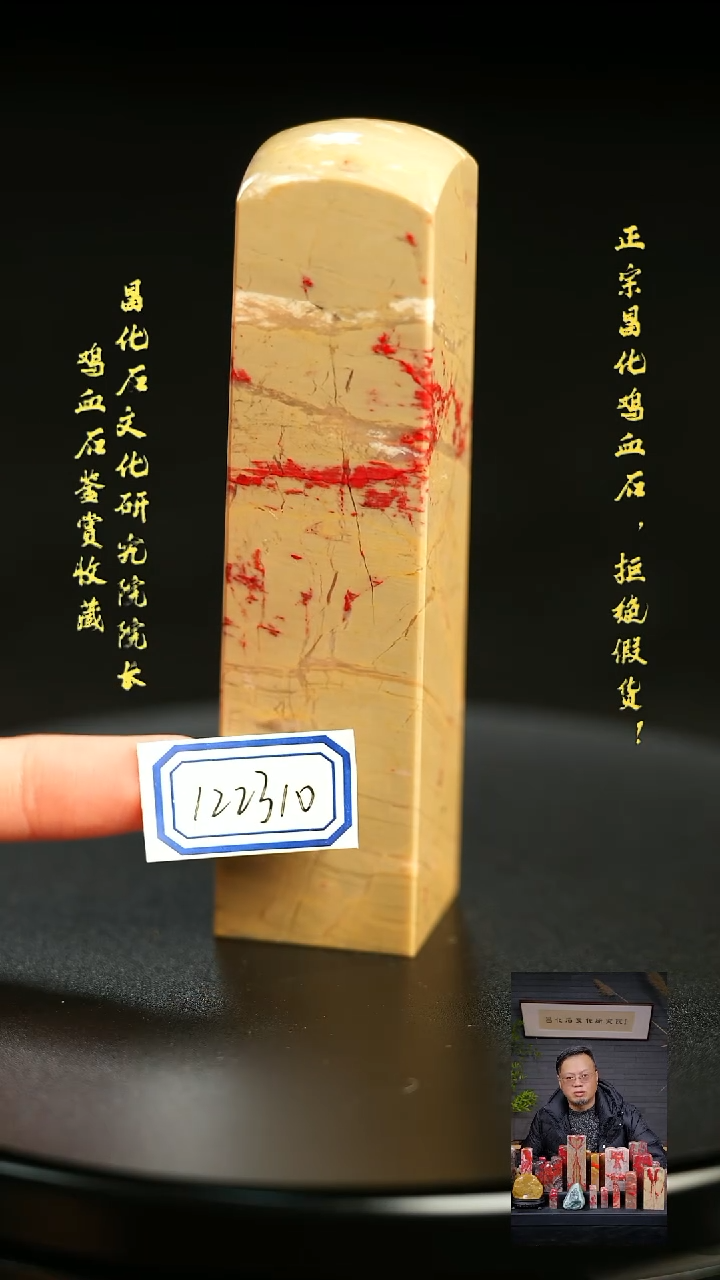 正宗昌化鸡血石，拒绝假货！
昌化石文化研究院院长
鸡血石鉴赏收藏
122310